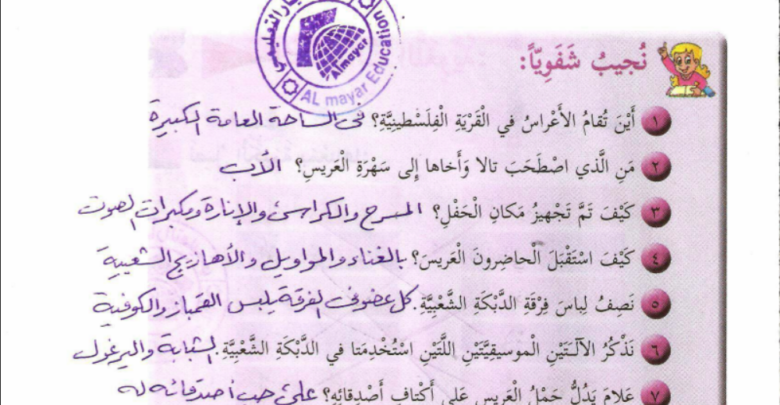 AL mayar Education
Almayar
نُجيبُ شَفَوِيّاً:
١ أَيْنَ تُقامُ الأَعْراسُ في الْقَرْيَةِ الْفِلَسْطينِيَّةِ؟ في الساحة العامة الكبيرة
٢ مَنِ الَّذي اصْطَحَبَ تالا وَأَخاها إِلى سَهْرَةِ الْعَريسِ؟ الأب
٣ كَيْفَ تَمَّ تَجْهيزُ مَكانِ الْحَفْلِ؟ المسرح والكراسي والإنارة ومكبرات الصوت
٤ كَيْفَ اسْتَقْبَلَ الْحاضِرونَ الْعَريسَ؟ بالغناء والمواويل والأهازيج الشعبية
٥ نَصِفُ لِباسَ فِرْقَةِ الدَّبْكَةِ الشَّعْبِيَّةِ. كل عضو في الفرقة يلبس القمباز والكوفية
٦ نَذْكُرُ الآلَتَيْنِ الْموسيقِيَّتَيْنِ اللَّتَيْنِ اسْتُخْدِمَتا في الدَّبْكَةِ الشَّعْبِيَّةِ. الشبابة واليرغول
٧ عَلامَ يَدُلُّ حَمْلُ الْعَريسِ عَلى أَكْتافِ أَصْدِقائِهِ؟ على حب أصدقائه له